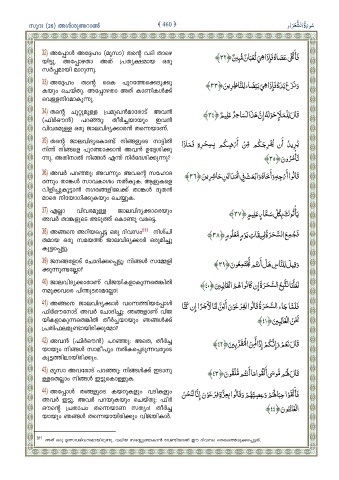 സൂറഃ (26) അശ്ശുഅറാഅ് ﴾ 460 ﴿ سُورَةُ الشُّعَرَاء
32) അപ്പോൾ അദ്ദേഹം (മൂസാ) തന്റെ വടി താഴെ
യിട്ടു. അപ്പോഴതാ അത് പ്രത്യക്ഷമായ ഒരു
സർപ്പമായി മാറുന്നു.
فَأَلْقَىٰ عَصَاهُ فَإِذَا هِيَ ثُعْبَانٌ مُّبِينٌ ﴿٣٢﴾
33) അദ്ദേഹം തന്റെ കൈ പുറത്തേക്കെടുക്കു
കയും ചെയ്തു. അപ്പോഴതാ അത് കാണികൾക്ക്
വെള്ളനിറമാകുന്നു.
وَنَزَعَ يَدَهُ فَإِذَا هِيَ بَيْضَاءُ لِلنَّاظِرِينَ ﴿٣٣﴾
34) തന്റെ ചുറ്റുമുള്ള പ്രമുഖൻമാരോട് അവൻ
(ഫിർഔൻ) പറഞ്ഞു: തീർച്ചയായും ഇവൻ
വിവരമുള്ള ഒരു ജാലവിദ്യക്കാരൻ തന്നെയാണ്.
قَالَ لِلْمَلَإِ حَوْلَهُ إِنَّ هَٰذَا لَسَاحِرٌ عَلِيمٌ ﴿٣٤﴾
35) തന്റെ ജാലവിദ്യകൊണ്ട് നിങ്ങളുടെ നാട്ടിൽ
നിന്ന് നിങ്ങളെ പുറത്താക്കാൻ അവൻ ഉദ്ദേശിക്കു
ന്നു. അതിനാൽ നിങ്ങൾ എന്ത് നിർദേശിക്കുന്നു?
يُرِيدُ أَن يُخْرِجَكُم مِّنْ أَرْضِكُم بِسِحْرِهِ فَمَاذَا
تَأْمُرُونَ ﴿٣٥﴾
36) അവർ പറഞ്ഞു: അവന്നും അവന്റെ സഹോദ
രന്നും താങ്കൾ സാവകാശം നൽകുക. ആളുകളെ
വിളിച്ചുകൂട്ടാൻ നഗരങ്ങളിലേക്ക് താങ്കൾ ദൂതൻ
മാരെ നിയോഗിക്കുകയും ചെയ്യുക.
قَالُوا أَرْجِهْ وَأَخَاهُ وَابْعَثْ فِي الْمَدَائِنِ حَاشِرِينَ ﴿٣٦﴾
37) എല്ലാ വിവരമുള്ള ജാലവിദ്യക്കാരെയും
അവർ താങ്കളുടെ അടുത്ത് കൊണ്ടു വരട്ടെ.
يَأْتُوكَ بِكُلِّ سَحَّارٍ عَلِيمٍ ﴿٣٧﴾
38) അങ്ങനെ അറിയപ്പെട്ട ഒരു ദിവസം നിശ്ചി
തമായ ഒരു സമയത്ത് ജാലവിദ്യക്കാർ ഒരുമിച്ചു
കൂട്ടപ്പെട്ടു.
فَجُمِعَ السَّحَرَةُ لِمِيقَاتِ يَوْمٍ مَّعْلُومٍ ﴿٣٨﴾
39) ജനങ്ങളോട് ചോദിക്കപ്പെട്ടു: നിങ്ങൾ സമ്മേളി
ക്കുന്നുണ്ടല്ലോ?
وَقِيلَ لِلنَّاسِ هَلْ أَنتُم مُّجْتَمِعُونَ ﴿٣٩﴾
40) ജാലവിദ്യക്കാരാണ് വിജയികളാകുന്നതെങ്കിൽ
നമുക്കവരെ പിന്തുടരാമല്ലോ!
لَعَلَّنَا نَتَّبِعُ السَّحَرَةَ إِن كَانُوا هُمُ الْغَالِبِينَ ﴿٤٠﴾
41) അങ്ങനെ ജാലവിദ്യക്കാർ വന്നെത്തിയപ്പോൾ
ഫിർഔനോട് അവർ ചോദിച്ചു: ഞങ്ങളാണ് വിജ
യികളാകുന്നതെങ്കിൽ തീർച്ചയായും ഞങ്ങൾക്ക്
പ്രതിഫലമുണ്ടായിരിക്കുമോ?
فَلَمَّا جَاءَ السَّحَرَةُ قَالُوا لِفِرْعَوْنَ أَئِنَّ لَنَا لَأَجْرًا إِن كُنَّا
نَحْنُ الْغَالِبِينَ ﴿٤١﴾
42) അവൻ (ഫിർഔൻ) പറഞ്ഞു: അതെ, തീർച്ച
യായും നിങ്ങൾ സാമീപ്യം നൽകപ്പെടുന്നവരുടെ
കൂട്ടത്തിലായിരിക്കും.
قَالَ نَعَمْ وَإِنَّكُمْ إِذًا لَّمِنَ الْمُقَرَّبِينَ ﴿٤٢﴾
43) മൂസാ അവരോട് പറഞ്ഞു: നിങ്ങൾക്ക് ഇടാനു
ള്ളതെല്ലാം നിങ്ങൾ ഇട്ടുകൊള്ളുക.
قَالَ لَهُم مُّوسَىٰ أَلْقُوا مَا أَنتُم مُّلْقُونَ ﴿٤٣﴾
44) അപ്പോൾ തങ്ങളുടെ കയറുകളും വടികളും
അവർ ഇട്ടു. അവർ പറയുകയും ചെയ്തു: ഫിർ
ഔന്റെ പ്രതാപം തന്നെയാണ സത്യം! തീർച്ച
യായും ഞങ്ങൾ തന്നെയായിരിക്കും വിജയികൾ.
فَأَلْقَوْا حِبَالَهُمْ وَعِصِيَّهُمْ وَقَالُوا بِعِزَّةِ فِرْعَوْنَ إِنَّا لَنَحْنُ
الْغَالِبُونَ ﴿٤٤﴾